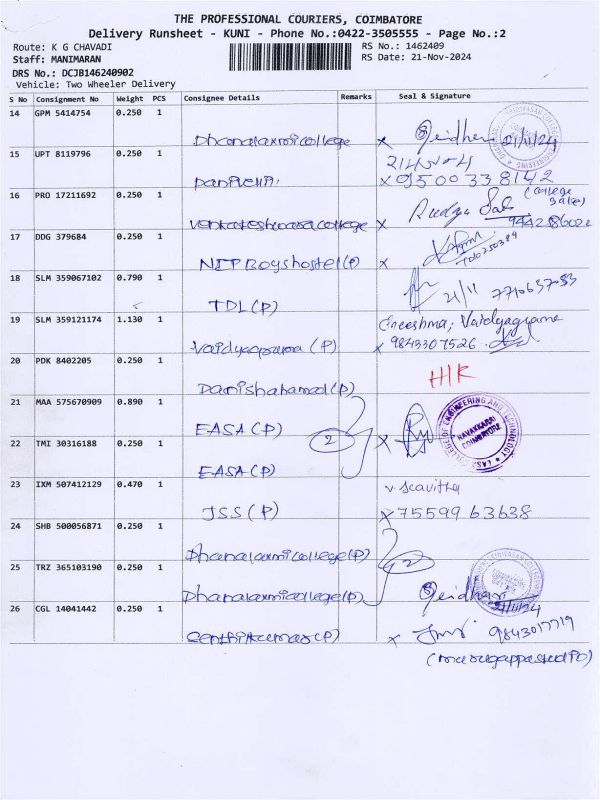 THE PROFESSIONAL COURIERS, COIMBATORE
Delivery Runsheet - KUNI - Phone No.:0422-3505555 - Page No.:2
Route: K G CHAVADI
RS No.: 1462409
Staff: MANIMARAN
RS Date: 21-Nov-2024
DRS No.: DCJB146240902
Vehicle: Two Wheeler Delivery
S No Consignment No Weight PCS Consignee Details Remarks Seal & Signature
14 GPM 5414754 0.250 1
Dhanalaxmi college x 21/11/24
15 UPT 8119796 0.250 1
x 9500338142
16 PRO 17211692 0.250 1 (college gate)
venkateshwara college x
17 DDG 379684 0.250 1
NIP Boys hostel (P) x
18 SLM 359067102 0.790 1
TDL (P) 21/11
19 SLM 359121174 1.130 1 Greeshma, Vaidyagrama
Vaidyagrama (P) x 9843307526
20 PDK 8402205 0.250 1
21 MAA 575670909 0.890 1
EASA (P)
22 TMI 30316188 0.250 1 2 x
EASA (P)
23 IXM 507412129 0.470 1
JSS (P) x 7559963638
24 SHB 500056871 0.250 1
Dhanalaxmi college (P)
25 TRZ 365103190 0.250 1 2
Dhanalaxmi college (P) 21/11/24
26 CGL 14041442 0.250 1
Senthilkumar (P) x 9843017719